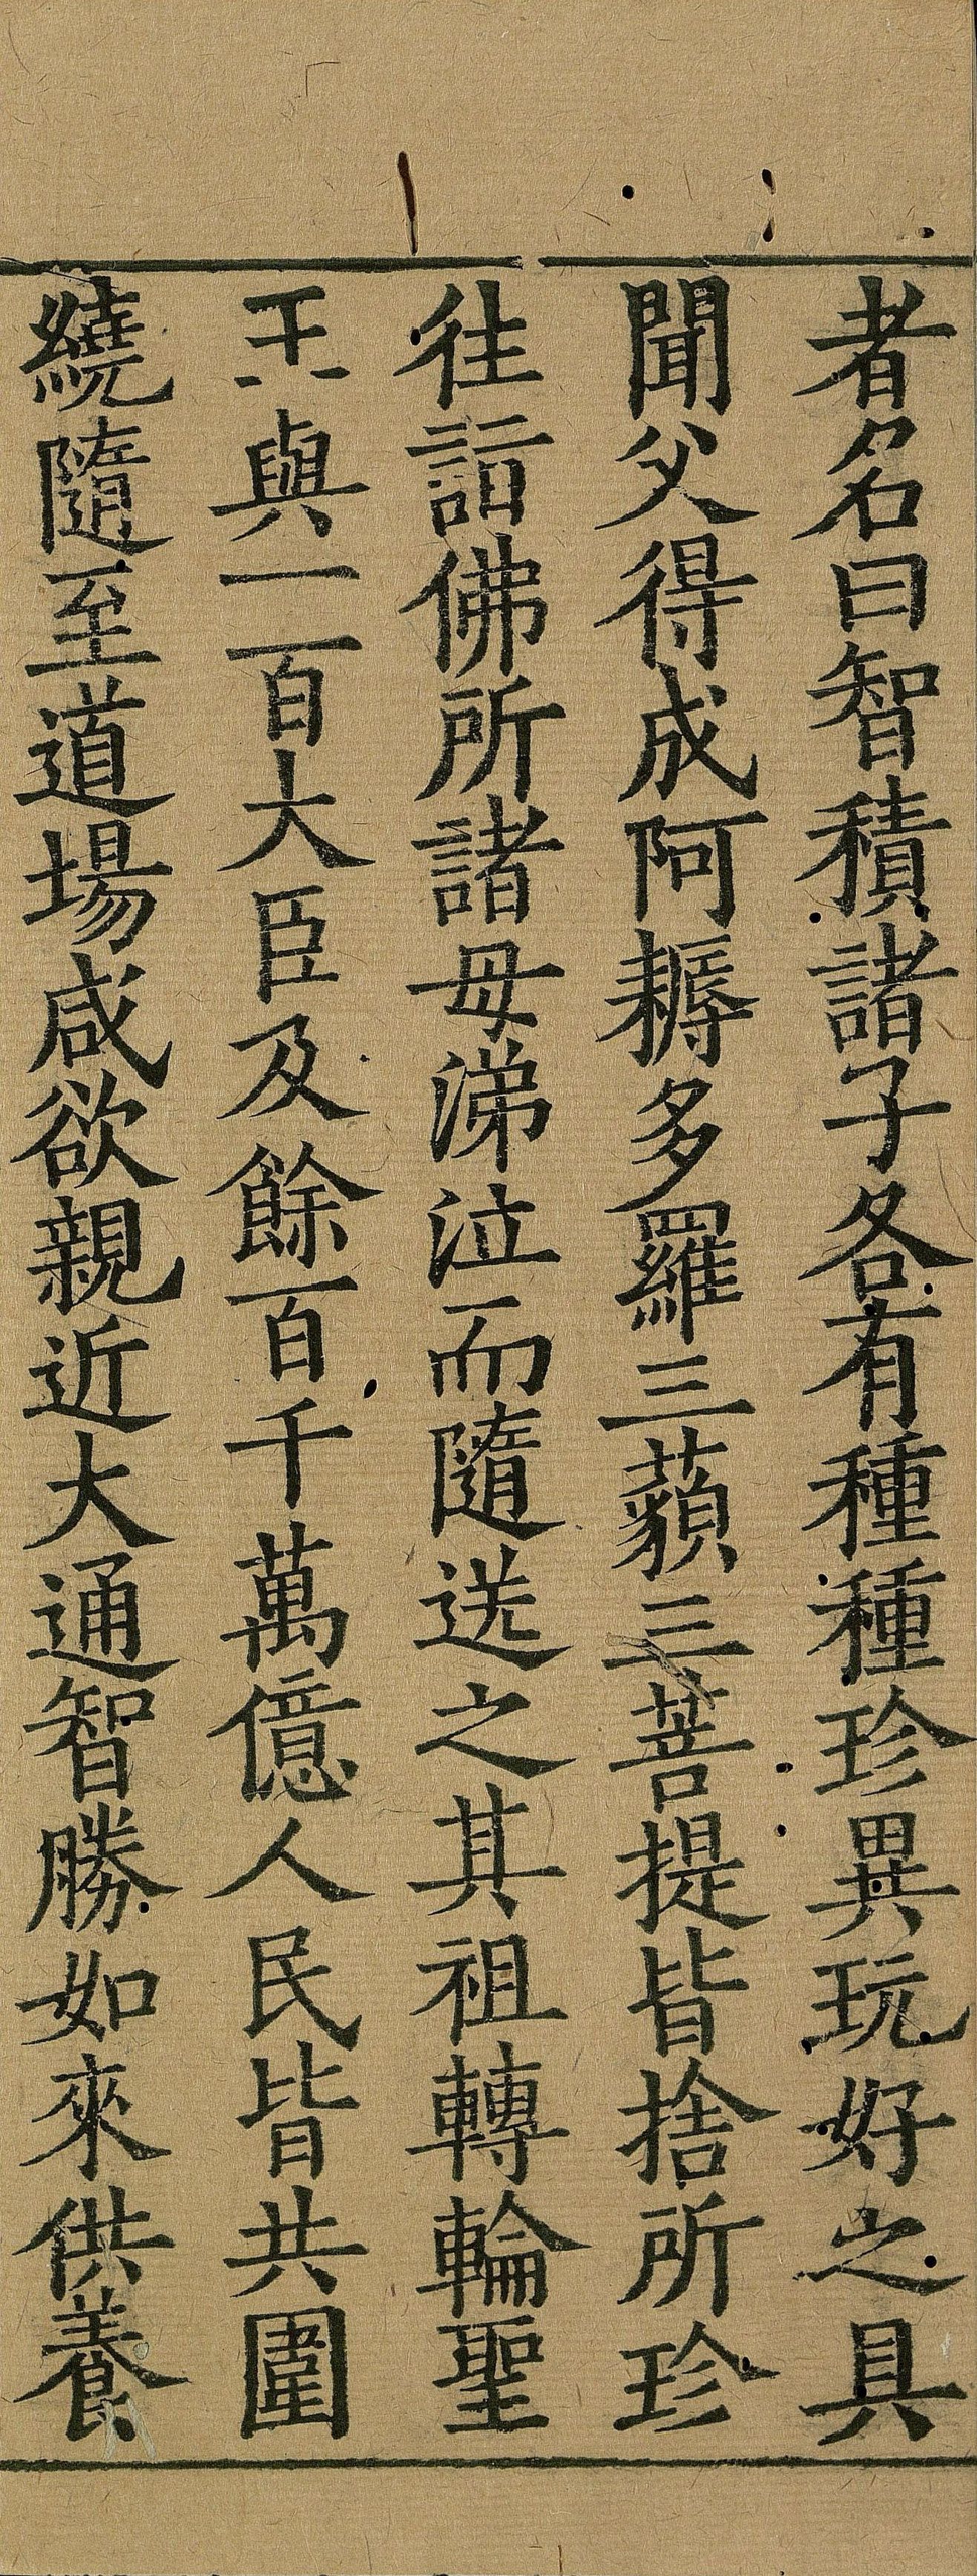 者名曰智積諸子各有種種珍異玩好之具
聞父得成阿耨多羅三藐三菩提皆捨所珍
往詣佛所諸母涕泣而隨送之其祖轉輪聖
王與一百大臣及餘百千萬億人民皆共圍
繞隨至道場咸欲親近大通智勝如來供養